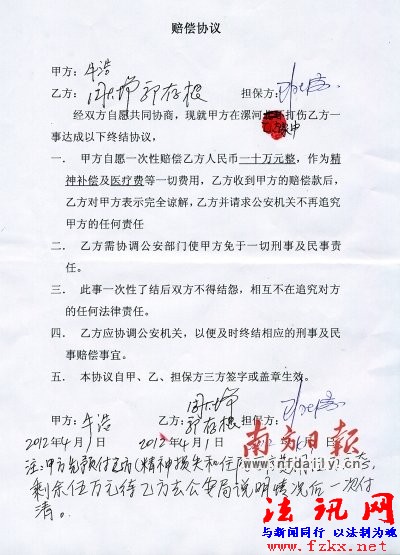 赔偿协议
甲方：牛浩
乙方： 郭存根 担保方：
经双方自愿共同协商，现就甲方在漯河 打伤乙方一
家中
事达成以下终结协议，
一． 甲方自愿一次性赔偿乙方人民币一十万元整，作为精
神补偿及医疗费等一切费用，乙方收到甲方的赔偿款后，
乙方对甲方表示完全谅解，乙方并请求公安机关不再追究
甲方的任何责任
二． 乙方需协调公安部门使甲方免于一切刑事及民事责
任。
三． 此事一次性了结后双方不得结怨，相互不在追究对方
的任何法律责任。
四． 乙方应协调公安机关，以便及时终结相应的刑事及民
事赔偿事宜。
五． 本协议自甲、乙、担保方三方签字或盖章生效。
甲方：牛浩 乙方： 郭存根 担保方：
2012年4月1日 2012年4月1
南方日报
www.nfdaily.cn
注：甲方先预付乙方（精神损失和住院
剩余伍万元待乙方去公安局说明情况后一次付
清。
法讯网
与新闻同行 以法制为魂
www.fzkx.net